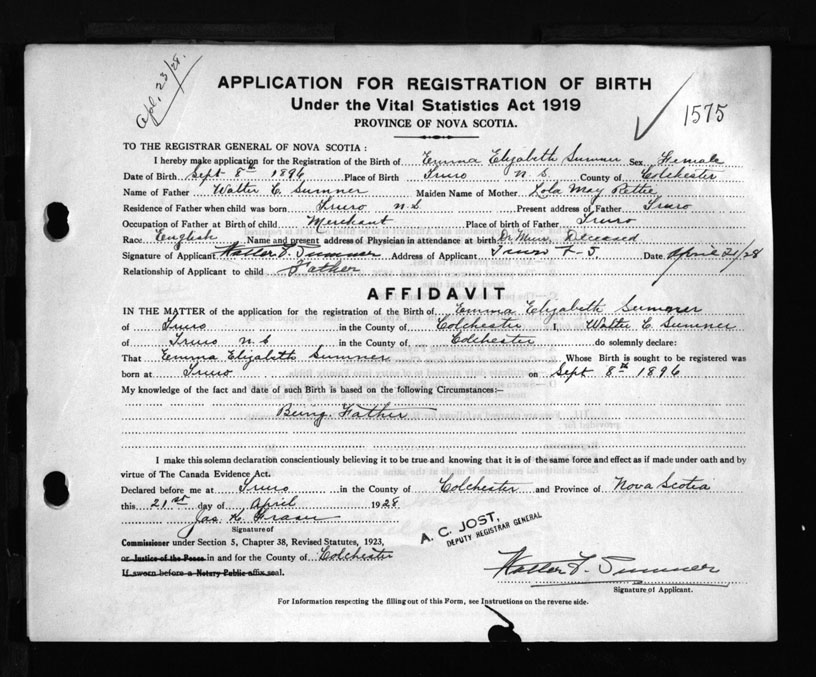 Apl, 23/28.
APPLICATION FOR REGISTRATION OF BIRTH
Under the Vital Statistics Act 1919
1575
PROVINCE OF NOVA SCOTIA.
TO THE REGISTRAR GENERAL OF NOVA SCOTIA:
I hereby make application for the Registration of the Birth of Emma Elizabeth Sumner Sex Female
Date of Birth Sept 8th 1896 Place of Birth Truro N. S. County of Colchester
Name of Father Walter C. Sumner Maiden Name of Mother Lola May Rettie
Residence of Father when child was born Truro N.S. Present address of Father Truro
Occupation of Father at Birth of child Merchant Place of birth of Father Truro
Race English Name and present address of Physician in attendance at birth Dr Deceased
Signature of Applicant Sumner Address of Applicant Truro N.S. Date April 21/28
Relationship of Applicant to child Father
AFFIDAVIT
IN THE MATTER of the application for the registration of the Birth of Emma Elizabeth Sumner
of Truro in the County of Colchester I, Walter C. Sumner
of Truro N.S in the County of Colchester do solemnly declare:
That Emma Elizabeth Sumner Whose Birth is sought to be registered was
born at Truro on Sept 8th 1896
My knowledge of the fact and date of such Birth is based on the following Circumstances:—
Being Father
I make this solemn declaration conscientiously believing it to be true and knowing that it is of the same force and effect as if made under oath and by
virtue of The Canada Evidence Act.
Declared before me at Truro in the County of Colchester and Province of Nova Scotia
this 21st day of April 1928
Jas. K. Fraser
Signature of
Commissioner under Section 5, Chapter 38, Revised Statutes, 1923,
or Justice of the Peace in and for the County of Colchester
If sworn before a Notary Public affix seal.
A. C. JOST,
DEPUTY REGISTRAR GENERAL
Sumner
Signature of Applicant.
For Information respecting the filling out of this Form, see Instructions on the reverse side.